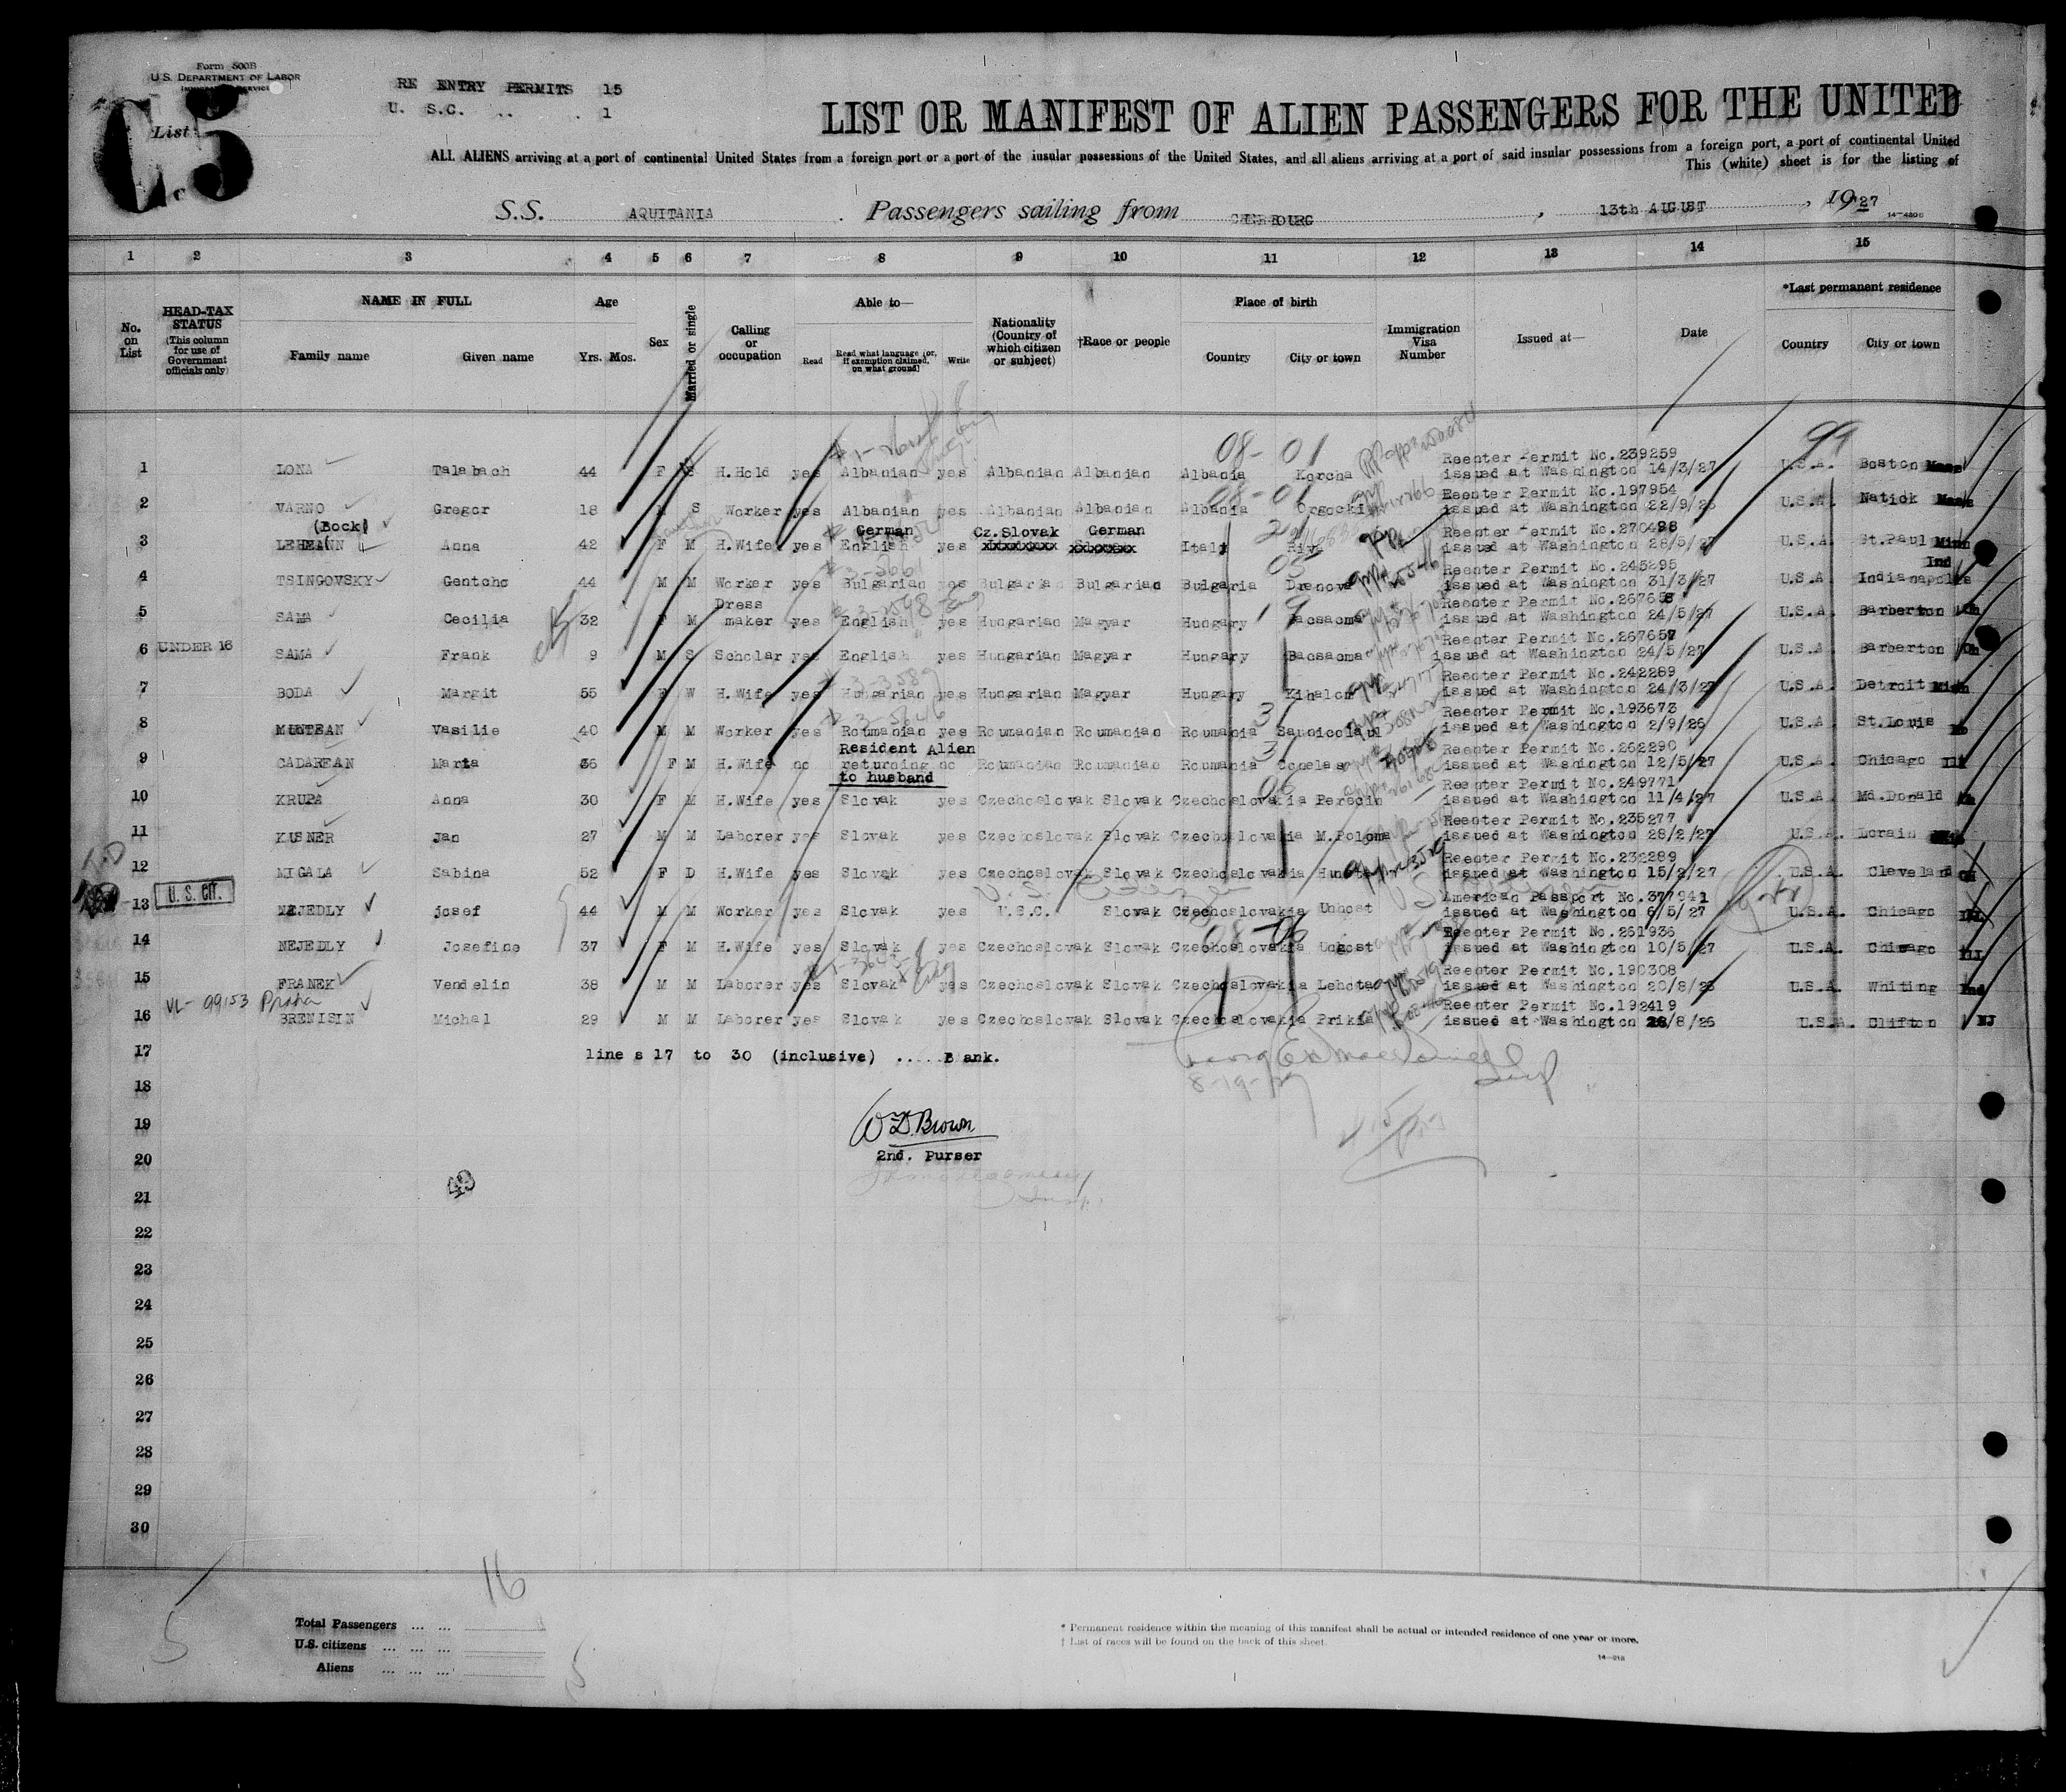 Form 500B
U.S. DEPARTMENT OF LABOR
IMMIGRATION SERVICE
List
C.5
RE ENTRY PERMITS 15
U. S.C. .. . 1
LIST OR MANIFEST OF ALIEN PASSENGERS FOR THE UNITED
ALL ALIENS arriving at a port of continental United States from a foreign port or a port of the insular possessions of the United States, and all aliens arriving at a port of said insular possessions from a foreign port, a port of continental United
This (white) sheet is for the listing of
S.S. AQUITANIA. Passengers sailing from CHERBOURG, 13th AUGUST, 1927
14-4806
1 2 3 4 5 6 7 8 9 10 11 12 13 14 15
No. on List
HEAD-TAX STATUS (This column for use of Government officials only)
NAME IN FULL
Family name Given name
Age
Yrs. Mos.
Sex
Married or single
Calling or occupation
Able to—
Read Read what language (or, if exemption claimed, on what ground) Write
Nationality (Country of which citizen or subject)
†Race or people
Place of birth
Country City or town
Immigration Visa Number
Issued at—
Date
*Last permanent residence
Country City or town
08- 01 99
Reenter Permit No.239259
1 LONA Talabach 44 F S H.Hold yes Albanian yes Albanian Albanian Albania Korcha issued at Washington 14/3/27 U.S.A. Boston Mass
08-01
Reenter Permit No.197954
2 VARNO Gregor 18 M S Worker yes Albanian yes Albanian Albanian Albania Orgocki issued at Washington 22/9/26 U.S.A. Natick Mass
(Bock) German Cz.Slovak German Reenter Permit No.270498
3 LEHMANN Anna 42 F M H.Wife yes English yes Italy Riva issued at Washington 28/5/27 U.S.A. St.Paul Minn
05 Reenter Permit No.245295 Ind
4 TSINGOVSKY Gentcho 44 M M Worker yes Bulgarian yes Bulgarian Bulgarian Bulgaria Drenova issued at Washington 31/3/27 U.S.A Indianapolis
Dress Reenter Permit No.267658
5 SAMA Cecilia 32 F M maker yes English yes Hungarian Magyar Hungary Bacsacma issued at Washington 24/5/27 U.S.A. Barberton Oh
Reenter Permit No.267657
6 UNDER 16 SAMA Frank 9 M S Scholar yes English yes Hungarian Magyar Hungary Bacsacma issued at Washington 24/5/27 U.S.A. Barberton Oh
Reenter Permit No.242289
7 BODA Margit 55 F W H.Wife yes Hungarian yes Hungarian Magyar Hungary Kihalom issued at Washington 24/3/27 U.S.A. Detroit Mich
Reenter Permit No.193673
8 MUNTEAN Vasilie 40 M M Worker yes Roumanian yes Roumanian Roumanian Roumania Saunicolaul issued at Washington 2/9/26 U.S.A St.Louis Mo
Resident Alien Reenter Permit No.262290
9 CADAREAN Maria 36 F M H.Wife no returning no Roumanian Roumanian Roumania Comelas issued at Washington 12/5/27 U.S.A. Chicago Ill
to husband
06 Reenter Permit No.249771
10 KRUPA Anna 30 F M H.Wife yes Slovak yes Czechoslovak Slovak Czechoslovakia Perecin issued at Washington 11/4/27 U.S.A. Md.Donald
Reenter Permit No.235277
11 KUSNER Jan 27 M M Laborer yes Slovak yes Czechoslovak Slovak Czechoslovakia M.Poloma issued at Washington 28/2/27 U.S.A. Lorain
Reenter Permit No.232289
12 MIGALA Sabina 52 F D H.Wife yes Slovak yes Czechoslovak Slovak Czechoslovakia issued at Washington 15/2/27 U.S.A. Cleveland Oh
U.S. Citizen U.S. Citizen
American Passport No.377941
13 U.S. CIT. NEJEDLY josef 44 M M Worker yes Slovak yes U.S.C. Slovak Czechoslovakia Unhost issued at Washington 6/5/27 U.S.A. Chicago Ill.
08-06 Reenter Permit No.261936
14 NEJEDLY Josefine 37 F M H.Wife yes Slovak yes Czechoslovak Slovak Czechoslovakia issued at Washington 10/5/27 U.S.A. Chicago Ill
Reenter Permit No.190308
15 FRANEK Vendelin 38 M M Laborer yes Slovak yes Czechoslovak Slovak Czechoslovakia Lehota issued at Washington 20/8/26 U.S.A. Whiting Ind
VL- 99153 Praha
Reenter Permit No.192419
16 BRENISIN Michal 29 M M Laborer yes Slovak yes Czechoslovak Slovak Czechoslovakia Prikia issued at Washington 28/8/26 U.S.A. Clifton NJ
17 line s 17 to 30 (inclusive) ....B ank.
18 8-19-27
19 W D. Brown
20 2nd. Purser
21
22
23
24
25
26
27
28
29
30
16
5
Total Passengers ... ...
U.S. citizens ... ... ...
Aliens ... ... ...
* Permanent residence within the meaning of this manifest shall be actual or intended residence of one year or more.
† List of races will be found on the back of this sheet.